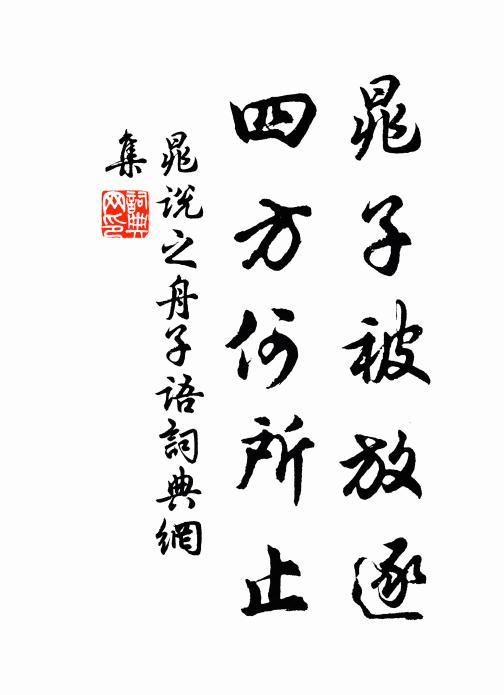 晁子被放逐
四方何所止
晁說之舟子語詞典網
集
詞典
网印